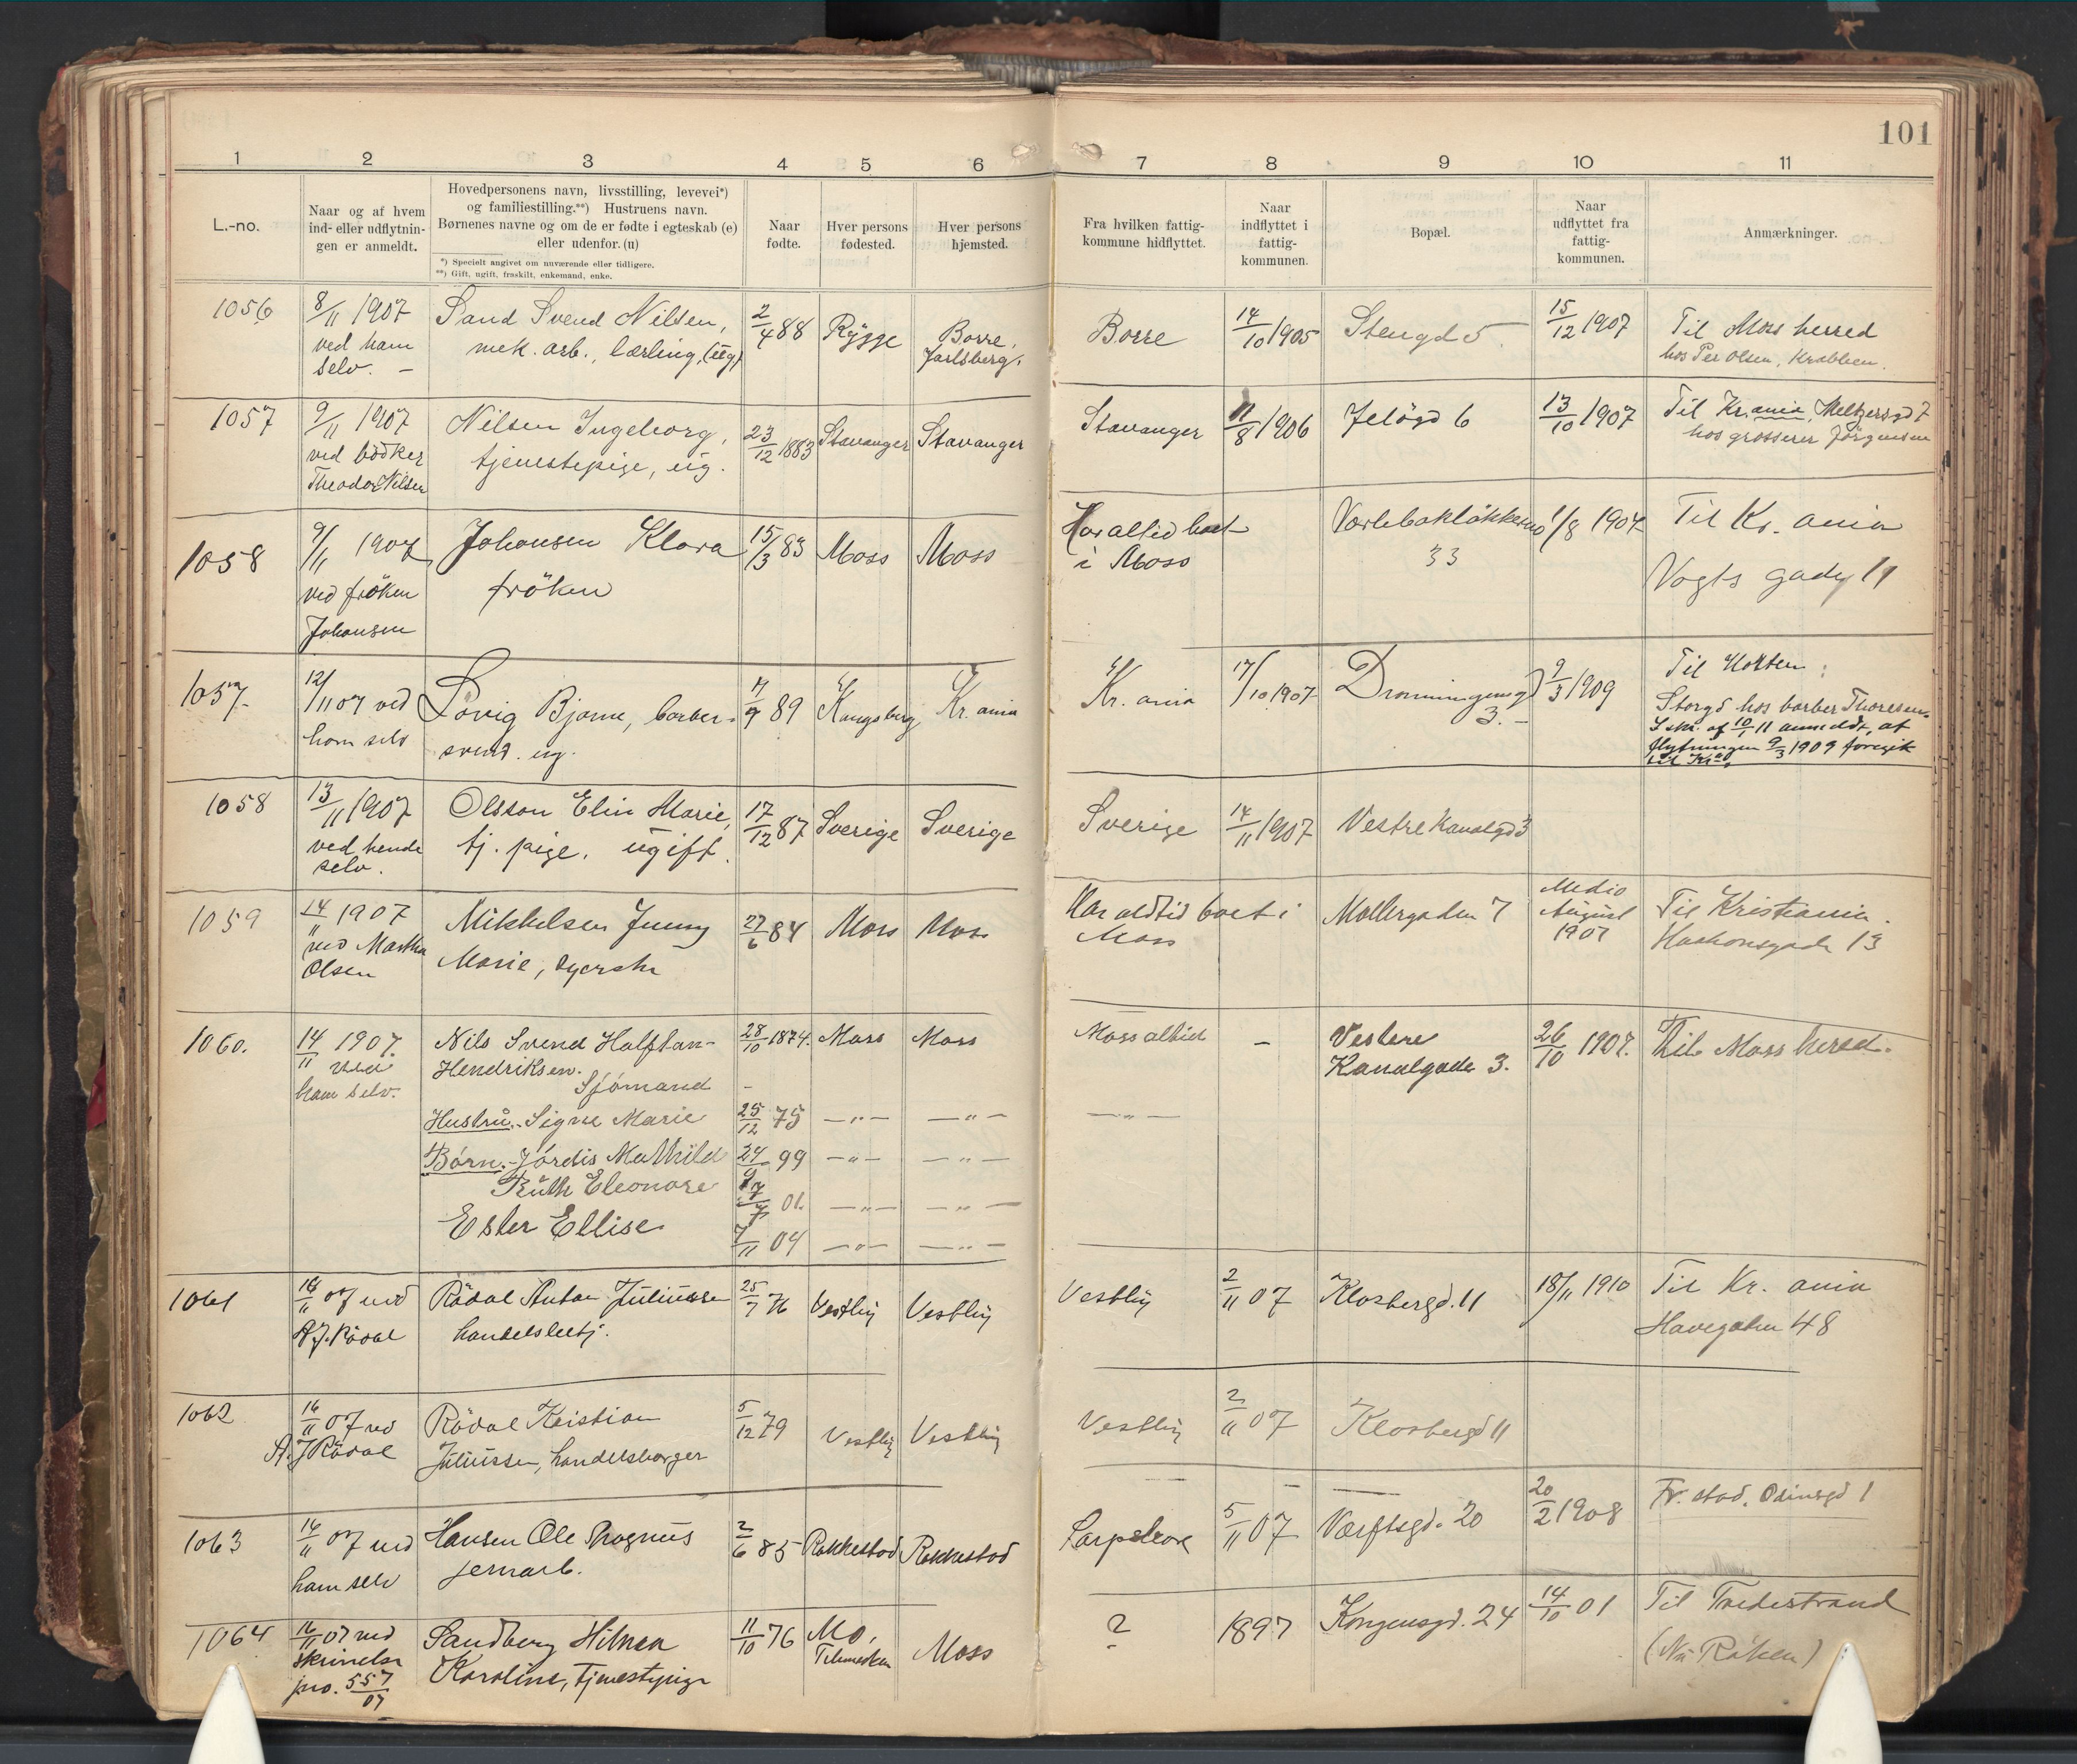 101
1 2 3 4 5 6 7 8 9 10 11
L.-no.
Naar og af hvem
ind- eller udflytnin-
gen er anmeldt.
Hovedpersonens navn, livsstilling, levevei*)
og familiestilling.**) Hustruens navn.
Børnenes navne og om de er fødte i egteskab (e)
eller udenfor. (u)
*) Specielt angivet om nuværende eller tidligere.
**) Gift, ugift, fraskilt, enkemand, enke.
Naar
fødte.
Hver persons
fødested.
Hver persons
hjemsted.
Fra hvilken fattig-
kommune hidflyttet.
Naar
indflyttet i
fattig-
kommunen.
Bopæl.
Naar
udflyttet fra
fattig-
kommunen.
Anmærkninger.
1056
8/11 1907
ved ham
selv. –
Sand Svend Nilsen,
mek. arb., lærling, (ug)
2/4 88
Rygge
Borre,
Jarlsberg.
Borre
14/10 1905
Stengd 5
15/12 1907
Til Moss herred
hos Per Olsen, Krabben.
1057
9/11 1907
ved bödker
Theodor Nilsen
Nilsen Ingeborg,
tjenestepige, ug.
23/12 1883
Stavanger
Stavanger
Stavanger
11/8 1906
Jelögd 6
13/10 1907
Til Kr.ania, Meltzersgd 7
hos grosserer Jörgensen
1058
9/11 1907
ved fröken
Johansen
Johansen Klara
fröken
15/3 83
Moss
Moss
Har altid boet
i Moss
Vorlebaklökken no
33
1/8 1907
Til Kr. ania
Vogts gade 11
1057.
12/11 07 ved
ham selv
Lövig Bjarne, barber-
svend. ug.
89
Kongsberg
Kr. ania
Kr. ania
17/10 1907
Dronningensgd
3. –
9/3 1909
Til Horten
Storgd hos barber Thoresen.
I skr. af 10/1 11 anmeldt, at
flytningen 9/3 1909 foregik
til Kra.
1058
13/11 1907
ved hende
selv.
Olsson Elin Marie,
tj. pige, ugift.
17/12 87
Sverige
Sverige
Sverige
14/11 1907
Vestre Kanalgd 3
1059
14/11 1907
ved Martha
Olsen
Mikkelsen Jenny
Marie, syerske
27/6 84
Moss
Moss
Har altid boet i
Moss
Möllergaden 7
Medio
August
1907
Til Kristiania.
Haakonsgade 13
1060.
14/11 1907.
ved
ham selv.
Nils Svend Halfdan-
Hendriksen.
Sjömand –
28/10 1874.
Moss
Moss
Moss altid
–
Vestere
Kanalgade 3.
26/10 1907.
Til Moss herred.
Hustru.- Signe Marie
25/12 75
–„– –„– –„–
Børn.- Jordis Mathild
24/9 99
–„– –„–
Ruth Eleonore
01.
–„– –„–
Ester Ellise.
7/11 04
–„– –„–
1061
07 ved
A. J. Rödal
Rödal Anton Juliussen
handelsbetj.
25/7 76
Vestby
Vestby
Vestby
2/11 07
Klosbergd. 11
18/11 1910
Til Kr. ania
Havegaten 48
1062
16/11 07 ved
A. J Rödal
Rödal Kristian
Juliussen, handelsborger
5/12 79
Vestby
Vestby
Vestby
2/11 07
Klosbergd 11
1063
16/11 07 ved
ham selv
Hansen Ole Magnus
jernarb.
2/6 85
Rakkestad
Rakkestad
Sarpsborg
5/11 07
Værftsgd. 20
20/2 1908
Fr. stad. Odinsgd 1
1064
16/11 07 ved
skrivelse
jno. 557/07
Sandberg Hilma
Karoline, tjenestepige
11/10 76
Mo,
Telemarken
Moss
?
1897
Kongensgd. 24
14/10 01
Til Tvedestrand
(Nu Röken)